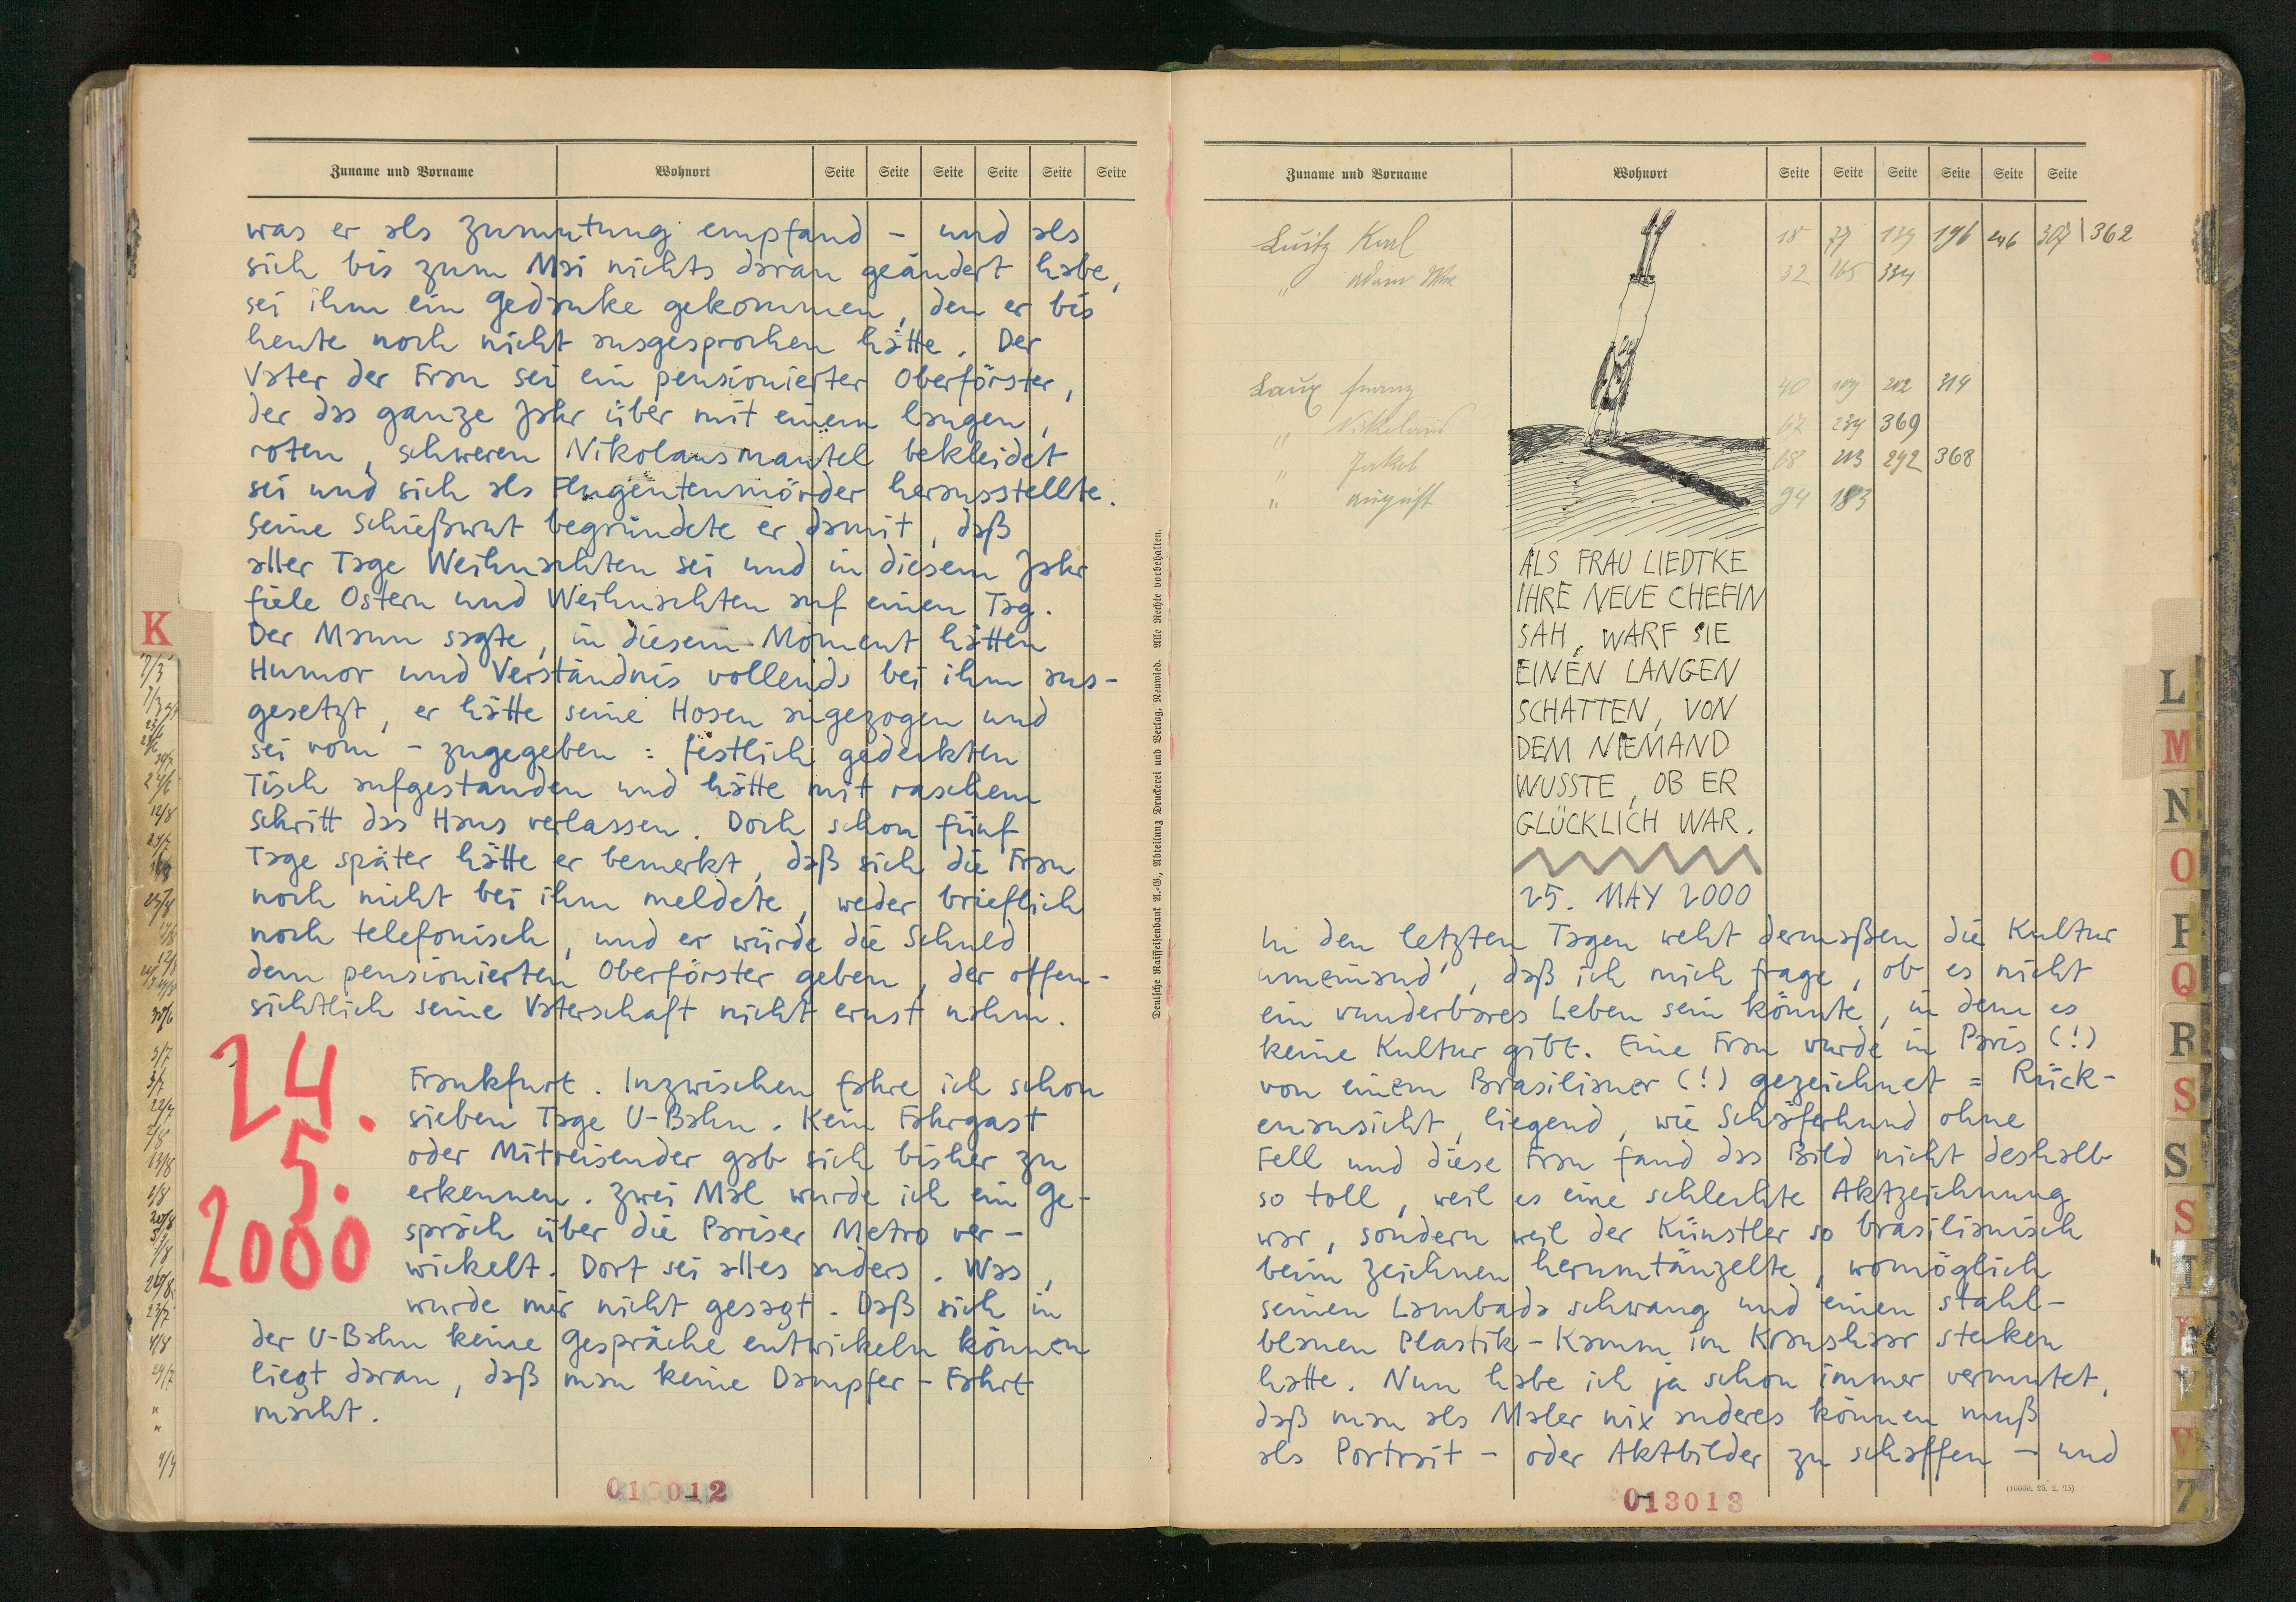 Zuname und Vorname Wohnort Seite Seite Seite Seite Seite Seite
was er als Zumutung empfand – und als
sich bis zum Mai nichts daran geändert habe,
sei ihm ein Gedanke gekommen, den er bis
heute noch nicht ausgesprochen hätte. Der
Vater der Frau sei ein pensionierter Oberförster,
der das ganze Jahr über mit einem langen,
roten, schweren Nikolausmantel bekleidet
sei und sich als Flugentenmörder herausstellte.
Seine Schießwut begründete er damit, daß
aller Tage Weihnachten sei und in diesem Jahr
fiele Ostern und Weihnachten auf einen Tag.
Der Mann sagte, in diesem Moment hätten
Humor und Verständnis vollends bei ihm aus-
gesetzt, er hätte seine Hosen angezogen und
sei vom – zugegeben: festlich gedeckten
Tisch aufgestanden und hätte mit raschem
Schritt das Haus verlassen. Doch schon fünf
Tage später hätte er bemerkt, daß sich die Frau
noch nicht bei ihm meldete, weder brieflich
noch telefonisch, und er würde die Schuld
dem pensionierten Oberförster geben, der offen-
sichtlich seine Vaterschaft nicht ernst nahm.
24.
5.
2000
Frankfurt. Inzwischen fahre ich schon
sieben Tage U-Bahn. Kein Fahrgast
oder Mitreisender gab sich bisher zu
erkennen. Zwei Mal wurde ich ein Ge-
spräch über die Pariser Metro ver-
wickelt. Dort sei alles anders. Was,
wurde mir nicht gesagt. Daß sich in
der U-Bahn keine Gespräche entwickeln können
liegt daran, daß man keine Dampfer-Fahrt
macht.
013012
K
Deutsche Raiffeisenbank A.-G., Abteilung Druckerei und Verlag, Neuwied. Alle Rechte vorbehalten.
Zuname und Vorname Wohnort Seite Seite Seite Seite Seite Seite
Luitz Karl 18 77 139 196 246 307 362
" Adam 32 165 334
Laux Franz 40 109 202 314
" 67 239 369
" Jakob 68 203 292 368
" August 94 183
ALS FRAU LIEDTKE
IHRE NEUE CHEFIN
SAH, WARF SIE
EINEN LANGEN
SCHATTEN, VON
DEM NIEMAND
WUSSTE, OB ER
GLÜCKLICH WAR.
25. MAY 2000
In den letzten Tagen weht dermaßen die Kultur
umeinand', daß ich mich frage, ob es nicht
ein wunderbares Leben sein könnte, in dem es
keine Kultur gibt. Eine Frau wurde in Paris (!)
von einem Brasilianer (!) gezeichnet = Rück-
enansicht, liegend, wie Schäferhund ohne
Fell und diese Frau fand das Bild nicht deshalb
so toll, weil es eine schlechte Aktzeichnung
war, sondern weil der Künstler so brasilianisch
beim Zeichnen herumtänzelte, womöglich
seinen Lambada schwang und einen stahl-
blauen Plastik-Kamm im Kraushaar stecken
hatte. Nun habe ich ja schon immer vermutet,
daß man als Maler nix anderes können muß
als Portrait- oder Aktbilder zu schaffen – und
013013
(10000. 25. 2. 25)
L
M
N
O
P
Q
R
S
S
S
T
V
7